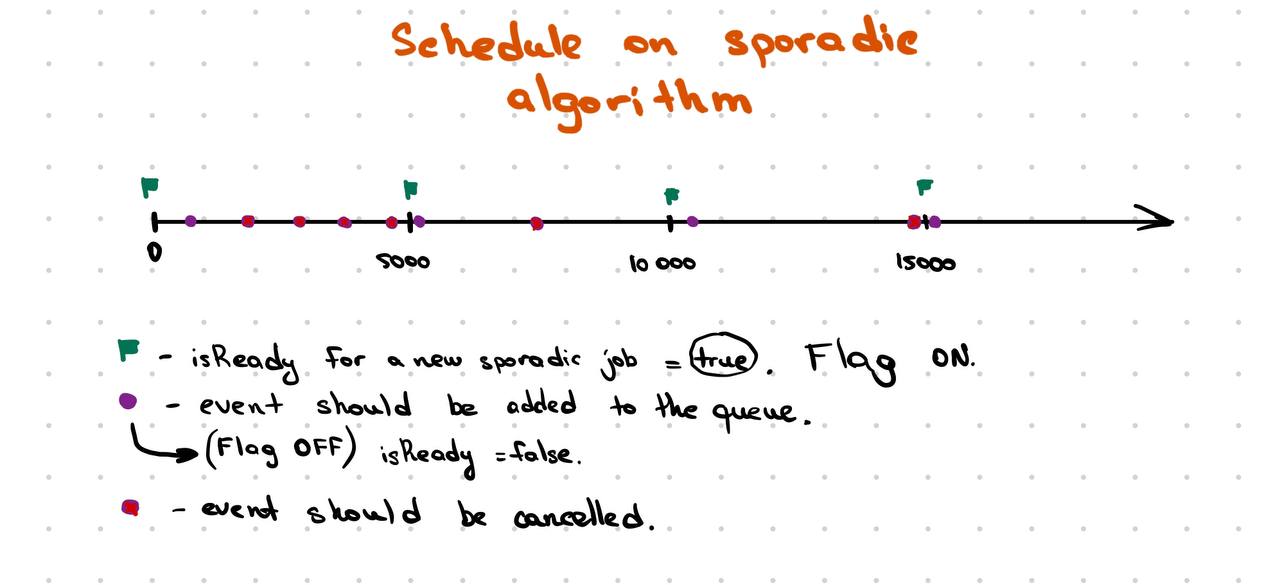 Schedule on sporadic
algorithm
0
5000
10 000
15000
- isReady for a new sporadic job = true. Flag ON.
- event should be added to the queue.
(Flag OFF) isReady = false.
- event should be cancelled.